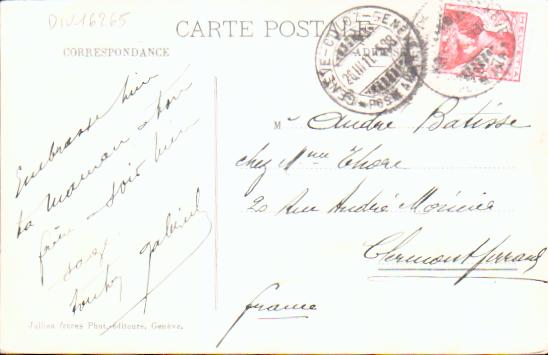 DIV16265
CARTE POSTALE
CORRESPONDANCE
GENÈVE-CULOZ-GENÈVE
HELVETIA
Embrasse bien
ta maman & ton
frère - sois bien
sage
M André Batisse
chez Mme Thore
20 Rue André Moinier
Clermontferrand
France
Jullien frères Phot.-éditeurs, Genève.